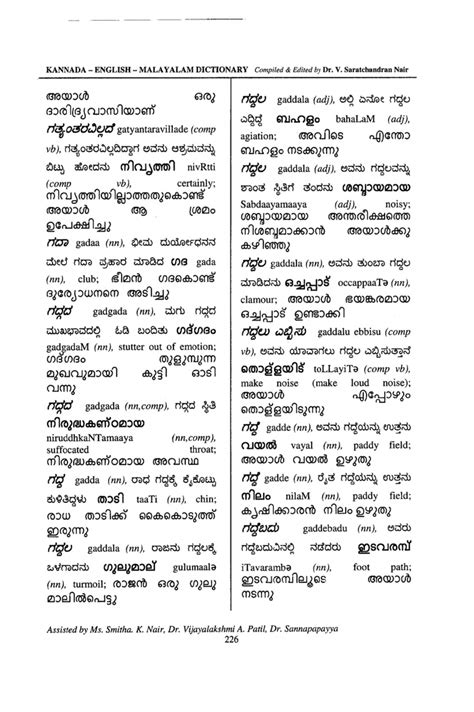 KANNADA – ENGLISH – MALAYALAM DICTIONARY Compiled & Edited by Dr. V. Saratchandran Nair
അയാൾ ഒരു
ദാരിദ്ര്യവാസിയാണ്
ಗತ್ಯಂತರವಿಲ್ಲದೆ gatyantaravillade (comp
vb), ಗತ್ಯಂತರವಿಲ್ಲದಿದ್ದಾಗ ಅವನು ಆಶ್ರಮವನ್ನು
ಬಿಟ್ಟು ಹೋದನು നിവൃത്തി nivRtti
(comp vb), certainly;
നിവൃത്തിയില്ലാത്തതുകൊണ്ട്
അയാൾ ആ ശ്രമം
ഉപേക്ഷിച്ചു
ಗದಾ gadaa (nn), ಭೀಮ ದುರ್ಯೋಧನನ
ಮೇಲೆ ಗದಾ ಪ್ರಹಾರ ಮಾಡಿದ ഗദ gada
(nn), club; ഭീമൻ ഗദകൊണ്ട്
ദുര്യോധനനെ അടിച്ചു
ಗದ್ಗದ gadgada (nn), ಮಗು ಗದ್ಗದ
ಮುಖಭಾವದಲ್ಲಿ ಓಡಿ ಬಂದಿತು ഗദ്ഗദം
gadgadaM (nn), stutter out of emotion;
ഗദ്ഗദം തുളുമ്പുന്ന
മുഖവുമായി കുട്ടി ഓടി
വന്നു
ಗದ್ಗದ gadgada (nn,comp), ಗದ್ಗದ ಸ್ಥಿತಿ
നിരുദ്ധകണ്ഠമായ
niruddhakaNTamaaya (nn,comp),
suffocated throat;
നിരുദ്ധകണ്ഠമായ അവസ്ഥ
ಗದ್ದ gadda (nn), ರಾಧ ಗದ್ದಕ್ಕೆ ಕೈಕೊಟ್ಟು
ಕುಳಿತಿದ್ದಳು താടി taaTi (nn), chin;
രാധ താടിക്ക് കൈകൊടുത്ത്
ഇരുന്നു
ಗದ್ದಲ gaddala (nn), ರಾಜನು ಗದ್ದಲಕ್ಕೆ
ಒಳಗಾದನು ഗുലുമാല് gulumaalə
(nn), turmoil; രാജൻ ഒരു ഗുലു
മാലിൽപെട്ടു
ಗದ್ದಲ gaddala (adj), ಅಲ್ಲಿ ಏನೋ ಗದ್ದಲ
ಎದ್ದಿದೆ ബഹളം bahaLaM (adj),
agiation; അവിടെ എന്തോ
ബഹളം നടക്കുന്നു
ಗದ್ದಲ gaddala (adj), ಅವನು ಗದ್ದಲವನ್ನು
ಶಾಂತ ಸ್ಥಿತಿಗೆ ತಂದನು ശബ്ദായമായ
Sabdaayamaaya (adj), noisy;
ശബ്ദായമായ അന്തരീക്ഷത്തെ
നിശബ്ദമാക്കാൻ അയാൾക്കു
കഴിഞ്ഞു
ಗದ್ದಲ gaddala (nn), ಅವನು ತುಂಬಾ ಗದ್ದಲ
ಮಾಡಿದನು ഒച്ചപ്പാട് occappaaTə (nn),
clamour; അയാൾ ഭയങ്കരമായ
ഒച്ചപ്പാട് ഉണ്ടാക്കി
ಗದ್ದಲು ಎಬ್ಬಿಸು gaddalu ebbisu (comp
vb), ಅವನು ಯಾವಾಗಲು ಗದ್ದಲ ಎಬ್ಬಿಸುತ್ತಾನೆ
തൊള്ളയിട് toLLayiTə (comp vb),
make noise (make loud noise);
അയാൾ എപ്പോഴും
തൊള്ളയിടുന്നു
ಗದ್ದೆ gadde (nn), ಅವನು ಗದ್ದೆಯನ್ನು ಉತ್ತನು
വയൽ vayal (nn), paddy field;
അയാൾ വയൽ ഉഴുതു
ಗದ್ದೆ gadde (nn), ರೈತ ಗದ್ದೆಯನ್ನು ಉತ್ತನು
നിലം nilaM (nn), paddy field;
കൃഷിക്കാരൻ നിലം ഉഴുതു
ಗದ್ದೆಬದು gaddebadu (nn), ಅವರು
ಗದ್ದೆಬದುವಿನಲ್ಲಿ ನಡೆದರು ഇടവരമ്പ്
iTavarambə (nn), foot path;
ഇടവരമ്പിലൂടെ അയാൾ
നടന്നു
Assisted by Ms. Smitha. K. Nair, Dr. Vijayalakshmi A. Patil, Dr. Sannapapayya
226